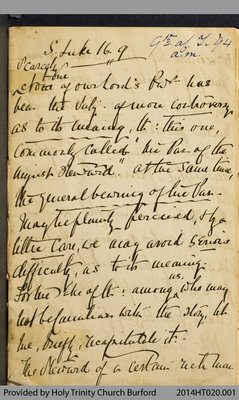 S. Luke 16. 9
9th af. T. /94
a.m.
Scarcely
one of our Lord's Par: has
been the subj: of more controversy
as to its meaning, th: this one,
commonly called "the Par: of the
unjust Steward." At the same time,
the general bearing of the Par:
may be plainly perceived, & by a
little care, we may avoid serious
difficulty, as to its meaning.
For the sake of th: among us, who may
not be familiar with the story, let
me, briefly, recapitulate it.
The Steward of a certain rich man
Provided by Holy Trinity Church Burford
2014HT020.001